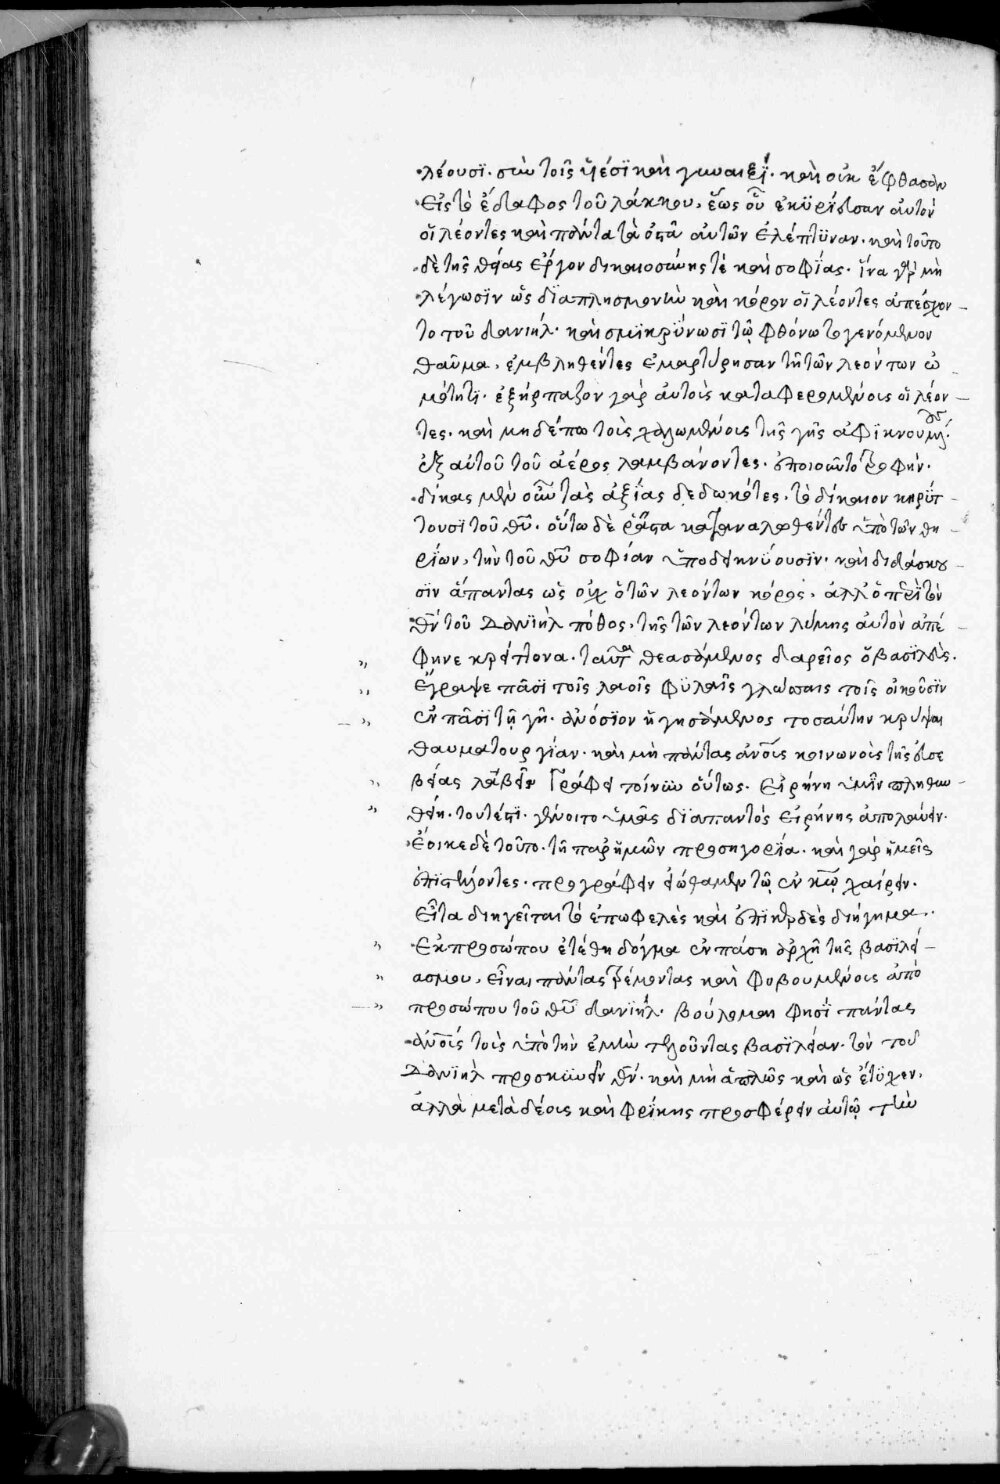 λέουσϊ. σὺν τοῖς ὑέσϊ καὶ γυναιξϊ. καὶ οὐκ ἔφθασαν
εἰς τὸ ἔδαφος τοῦ λάκκου, ἕως οὗ ἐκϋρίευσαν αὐτῶν
οἱ λέοντες καὶ πάντα τὰ ὀστᾶ αὐτῶν ἐλέπτϋναν. καὶ τοῦτο
δὲ τῆς θείας ἔργον δικαιοσύνης τὲ καὶ σοφΐας. ἵνα γὰρ μὴ
λέγωσϊν ὡς δϊα πλησμονὴν καὶ κόρον οἱ λέοντες ἀπέσχον
το τοῦ δανιήλ. καὶ σμϊκρΰνωσϊ τῷ φθόνω τὸ γενόμενον
θαῦμα, ἐμβληθέντες ἐμαρτύρησαν τῇ τῶν λεόντων ὠ
μότητϊ. ἐξήρπαζον γὰρ αὐτοὺς καταφερομένους οἱ λέον
τες. καὶ μηδέπω τοὺς χαλωμένους τῆς γῆς ἀφικνουμένους.
ἐξ αὐτοῦ τοῦ ἀέρος λαμβάνοντες. ἐποιοῦντο τροφήν.
δίκας μὲν οὖν τὰς ἀξΐας δεδωκότες. τὸ δίκαιον κηρΰτ
τουσϊ τοῦ θῦ. οὕτω δὲ ῥᾷστα καταναλωθέντες ὑπὸ τῶν θη
ρΐων, τὴν τοῦ θῦ σοφίαν ὑποδεικνΰουσϊν. καὶ διδάσκου
σϊν ἅπαντας ὡς οὐχ ὁ τῶν λεόντων κόρος, ἀλλ' ὁ περὶ τὸν
θν τοῦ δανϊὴλ πόθος, τῆς τῶν λεόντων λύμης αὐτὸν ἀπέ
φηνε κρείττονα. ταῦτα θεασάμενος δαρεῖος ὁ βασϊλεὺς.
ἔγραψε πᾶσϊ τοῖς λαοῖς φϋλαῖς γλώσσαις τοῖς οἰκοῦσϊν
ἐν πᾶσϊ τῇ γῇ. ἀνόσϊον ἡγησάμενος τοσαύτην κρύψαι
θαυματουργίαν. καὶ μὴ πάντας ἀνοὺς κοινωνοὺς τῆς εὐσε
βείας λαβεῖν γράφει τοίνϋν οὕτως. εἰρήνη ὑμῖν πληθυν
θείη. τουτέστϊ. γένοιτο ὑμᾶς δϊαπαντὸς εἰρήνης ἀπολαύειν.
ἔοικε δὲ τοῦτο. τῇ παρ' ἡμῶν προσηγορΐα. καὶ γὰρ ἡμεῖς
ἐπϊστέλλοντες. προγράφειν εἰώθαμεν τῷ ἐν κω χαίρειν.
εἶτα διηγεῖται τὸ ἐπωφελὲς καὶ ἐπϊκερδὲς διήγημα.
ἐκ προσώπου ἐτέθη δόγμα ἐν πάση ἀρχῇ τῆς βασϊλεί
ασμου, εἶναι πάντας τρέμοντας καὶ φοβουμένους ἀπὸ
προσώπου τοῦ θῦ δανϊήλ. βούλομαι φησΐ πάντας
ἀνοὺς τοὺς ὑπὸ τὴν ἐμὴν τελοῦντας βασϊλείαν. τὸν τοῦ
δανϊὴλ προσκϋνεῖν θν. καὶ μὴ ἁπλῶς καὶ ὡς ἔτϋχεν,
ἀλλὰ μετὰ δέους καὶ φρίκης προσφέρειν αὐτῷ τὴν